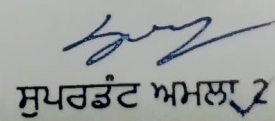 ਸੁਪਰਡੰਟ ਅਮਲਾ 2